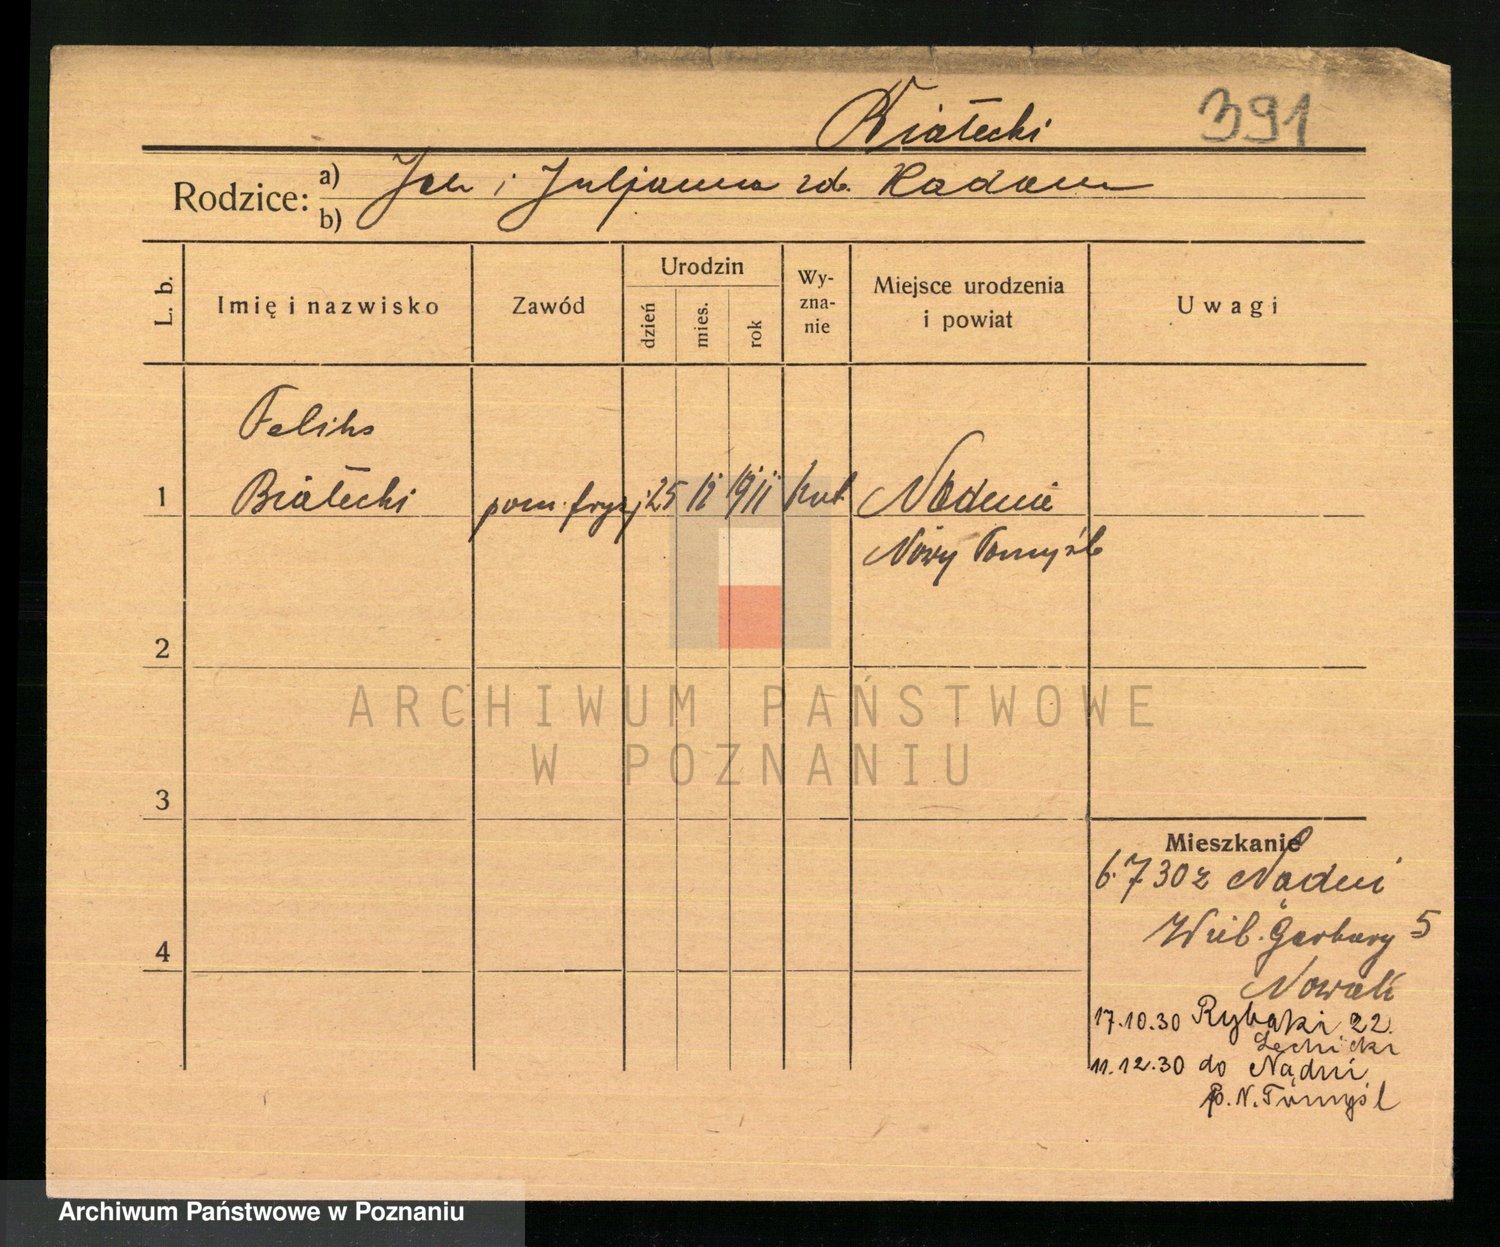 Białecki 391
Rodzice: a) Jan i Juljanna zd. Radom
b)
L. b. Imię i nazwisko Zawód Urodzin dzień mies. rok Wy-zna-nie Miejsce urodzenia i powiat Uwagi
Feliks
1 Białecki pom. fryzj 25 12 1911 kat. Nądnia
Nowy Tomyśl
2
ARCHIWUM PAŃSTWOWE
W POZNANIU
3
Mieszkanie
6.7 30 z Nądni
Wielk. Garbary 5
Nowak
4
17.10.30 Rybaki 22.
Lechicki
11.12.30 do Nądni
p. N. Tomyśl
Archiwum Państwowe w Poznaniu